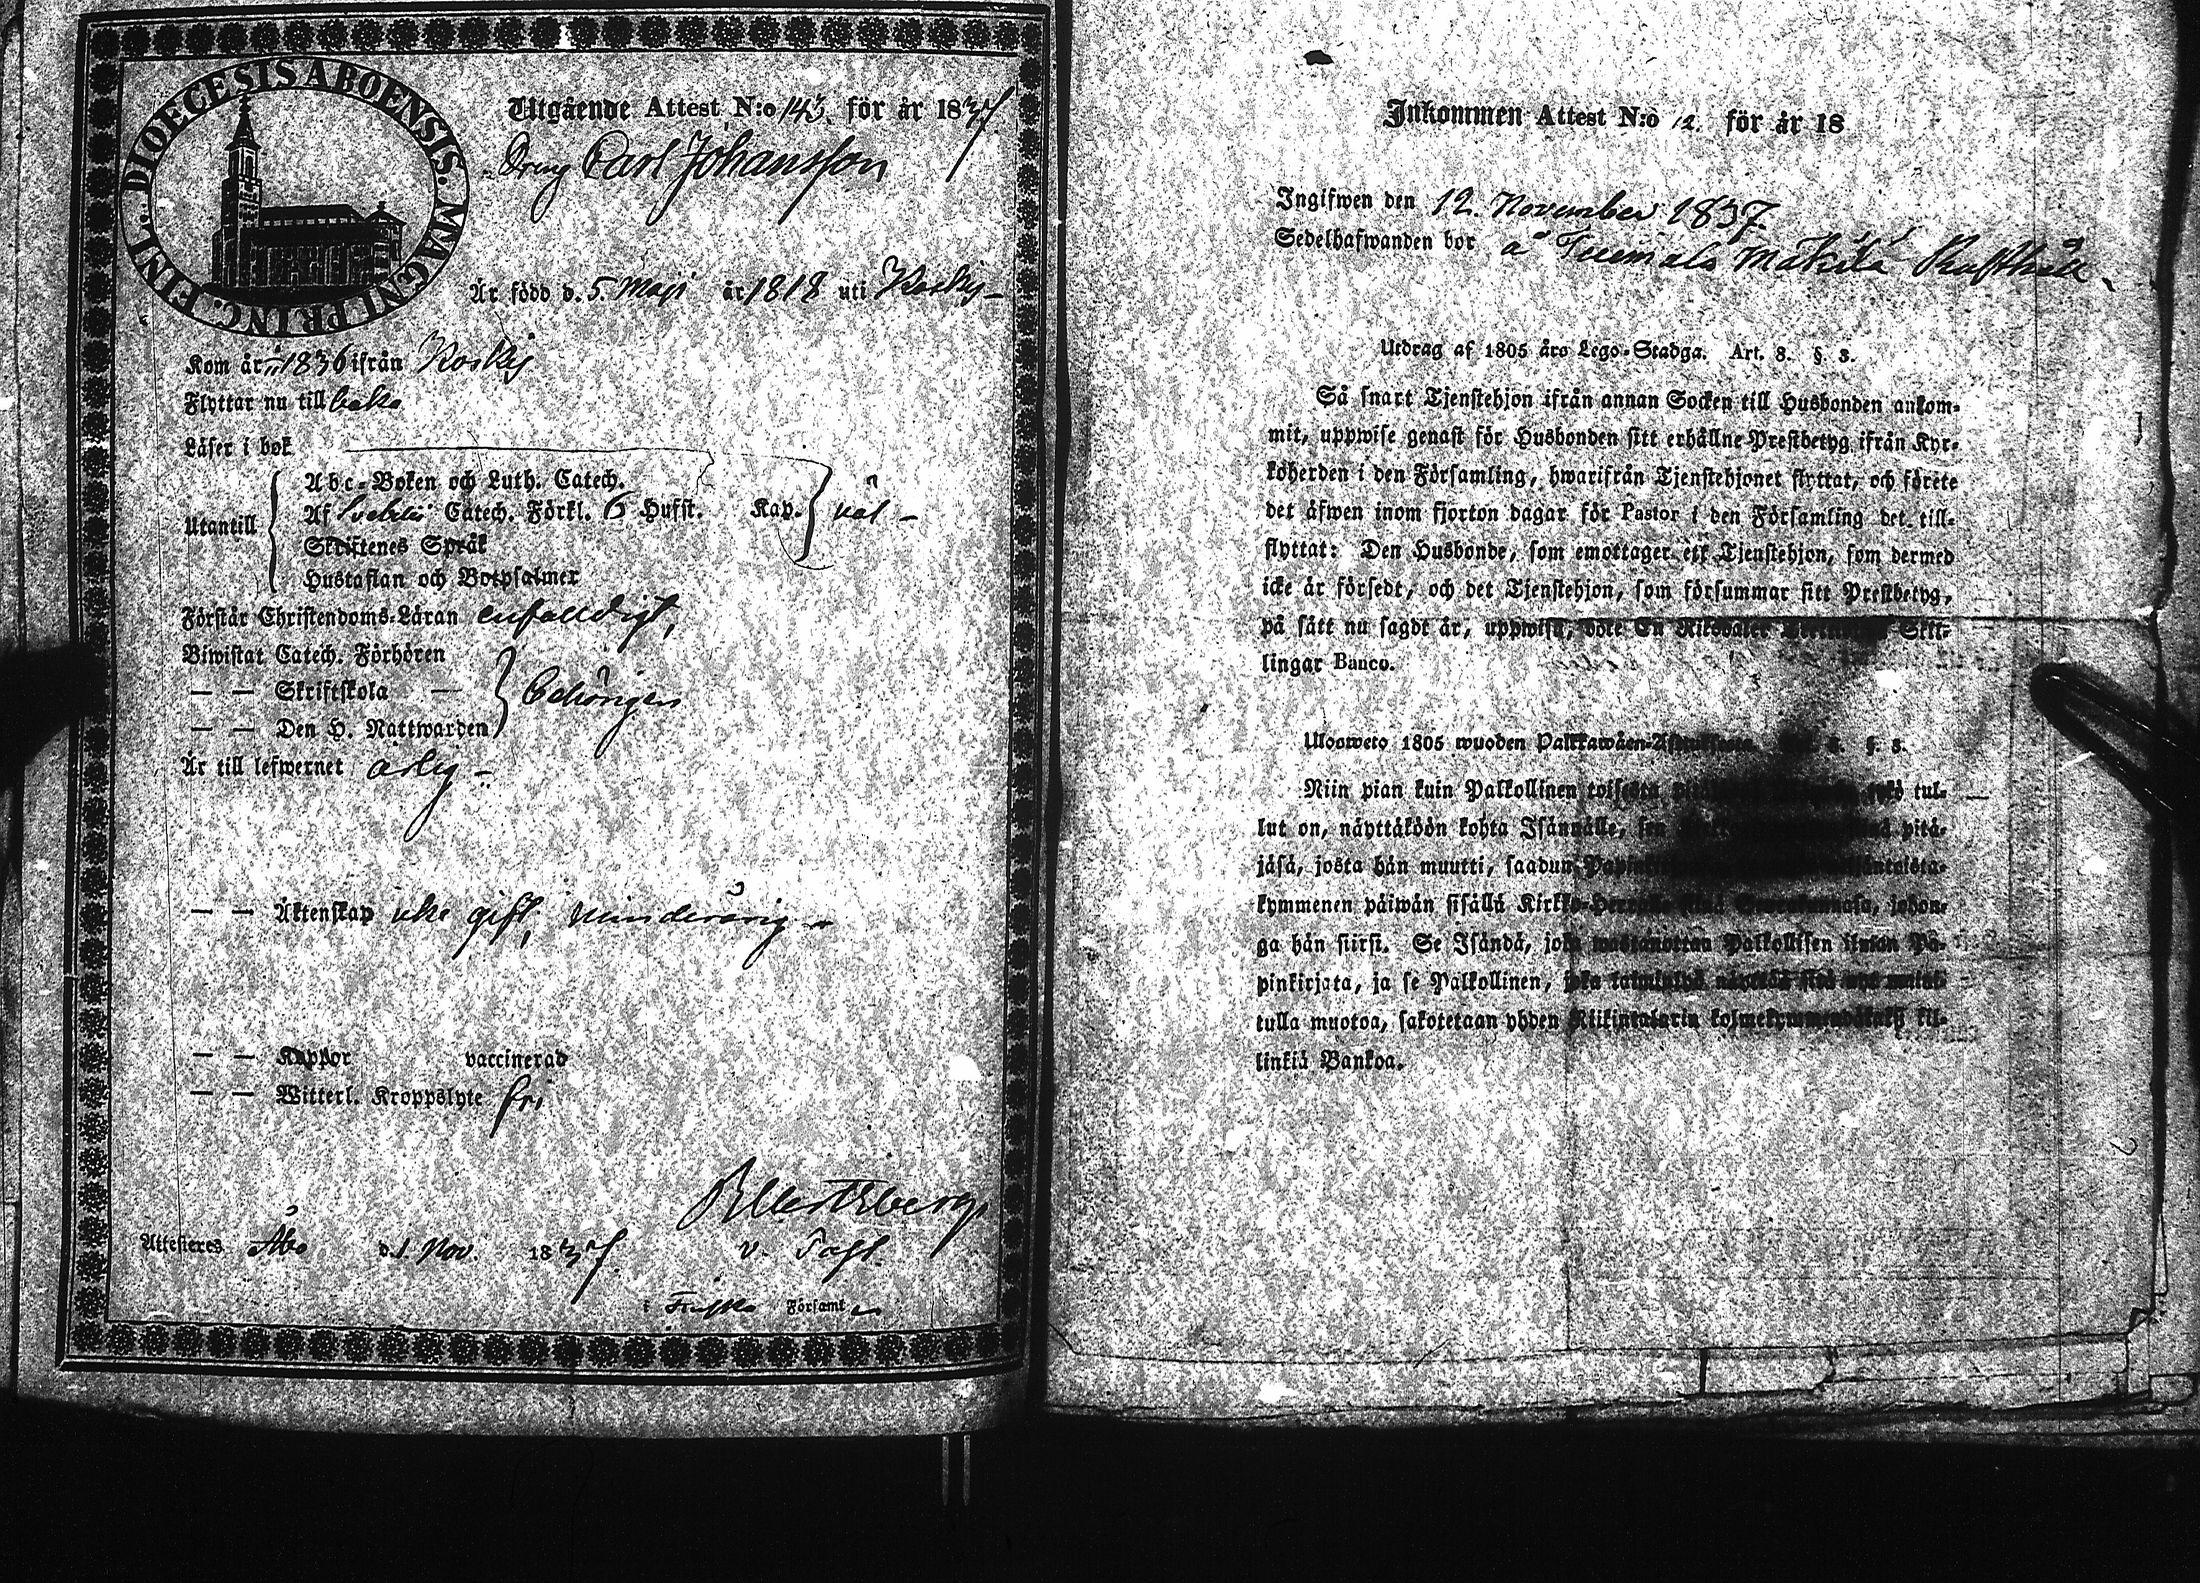 FINL. DIOECESIS ABOENSIS. MAGNI PRINC.
Utgående Attest N:o 143. för år 1837
Dreng Carl Johansson
Är född d. 5. Maji år 1818 uti Koskis
Kom år 1836 ifrån Koskis
Flyttar nu till baka
Läser i bok
Utantill
Abc-Boken och Luth. Catech.
Af Svebilii Catech. Förkl. 6 Hufst. Kap. väl -
Skriftenes Språk
Hustaflan och Botpsalmer
Förstår Christendoms-Läran enfaldigt,
Biwistat Catech. Förhören
— — Skriftskola — behörigen
— — Den H. Nattwarden
Är till lefwernet ärlig -
— — Äktenskap icke gift, minderårig -
— — Koppor vaccinerad
— — Witterl. Kroppslyte fri
Attesteres Åbo d. 1. Nov. 1837.
v. Past.
i Finska Församl
Inkommen Attest N:o 12. för år 18
Ingifwen den 12. November 1837.
Sedelhafwanden bor å Tuimala Mäkilä Rusthåll
Utdrag af 1805 års Lego-Stadga. Art. 8. §. 3.
Så snart Tjenstehjon ifrån annan Socken till Husbonden ankom-
mit, uppwise genast för Husbonden sitt erhållne Prestbetyg ifrån Kyr-
koherden i den Församling, hwarifrån Tjenstehjonet flyttat, och förete
det äfwen inom fjorton dagar för Pastor i den Församling det till-
flyttat: Den Husbonde, som emottager ett Tjenstehjon, som dermed
icke är försedt, och det Tjenstehjon, som försummar sitt Prestbetyg,
på sätt nu sagdt är, uppwisa, böte En Riksdaler Skil-
lingar Banco.
Ulosweto 1805 wuoden Palkkawäen- §. 3.
Niin pian kuin Palkollinen toisesta tul-
lut on, näyttäköön kohta Isännälle, sen pitä-
jäsä, josta hän muutti, saadun
kymmenen päiwän sisällä Kirkko-Herralle siinä Seurakunnasa, johon-
ga hän siirsi. Se Isändä, joka wastanottaa Palkollisen ilman Pa-
pinkirjata, ja se Palkollinen, joka
tulla muotoa, sakotetaan yhden Riikintalarin kolmekymmendäkaksi kil-
linkiä Bankoa.